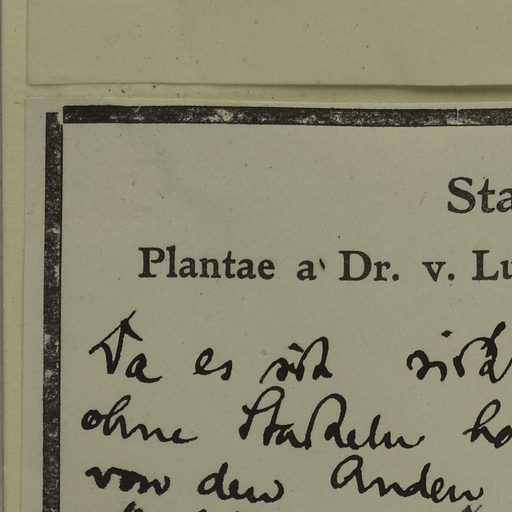 Sta
Plantae a Dr. v. Lu
Da es sich nicht
ohne Stacheln ha
von den Anden